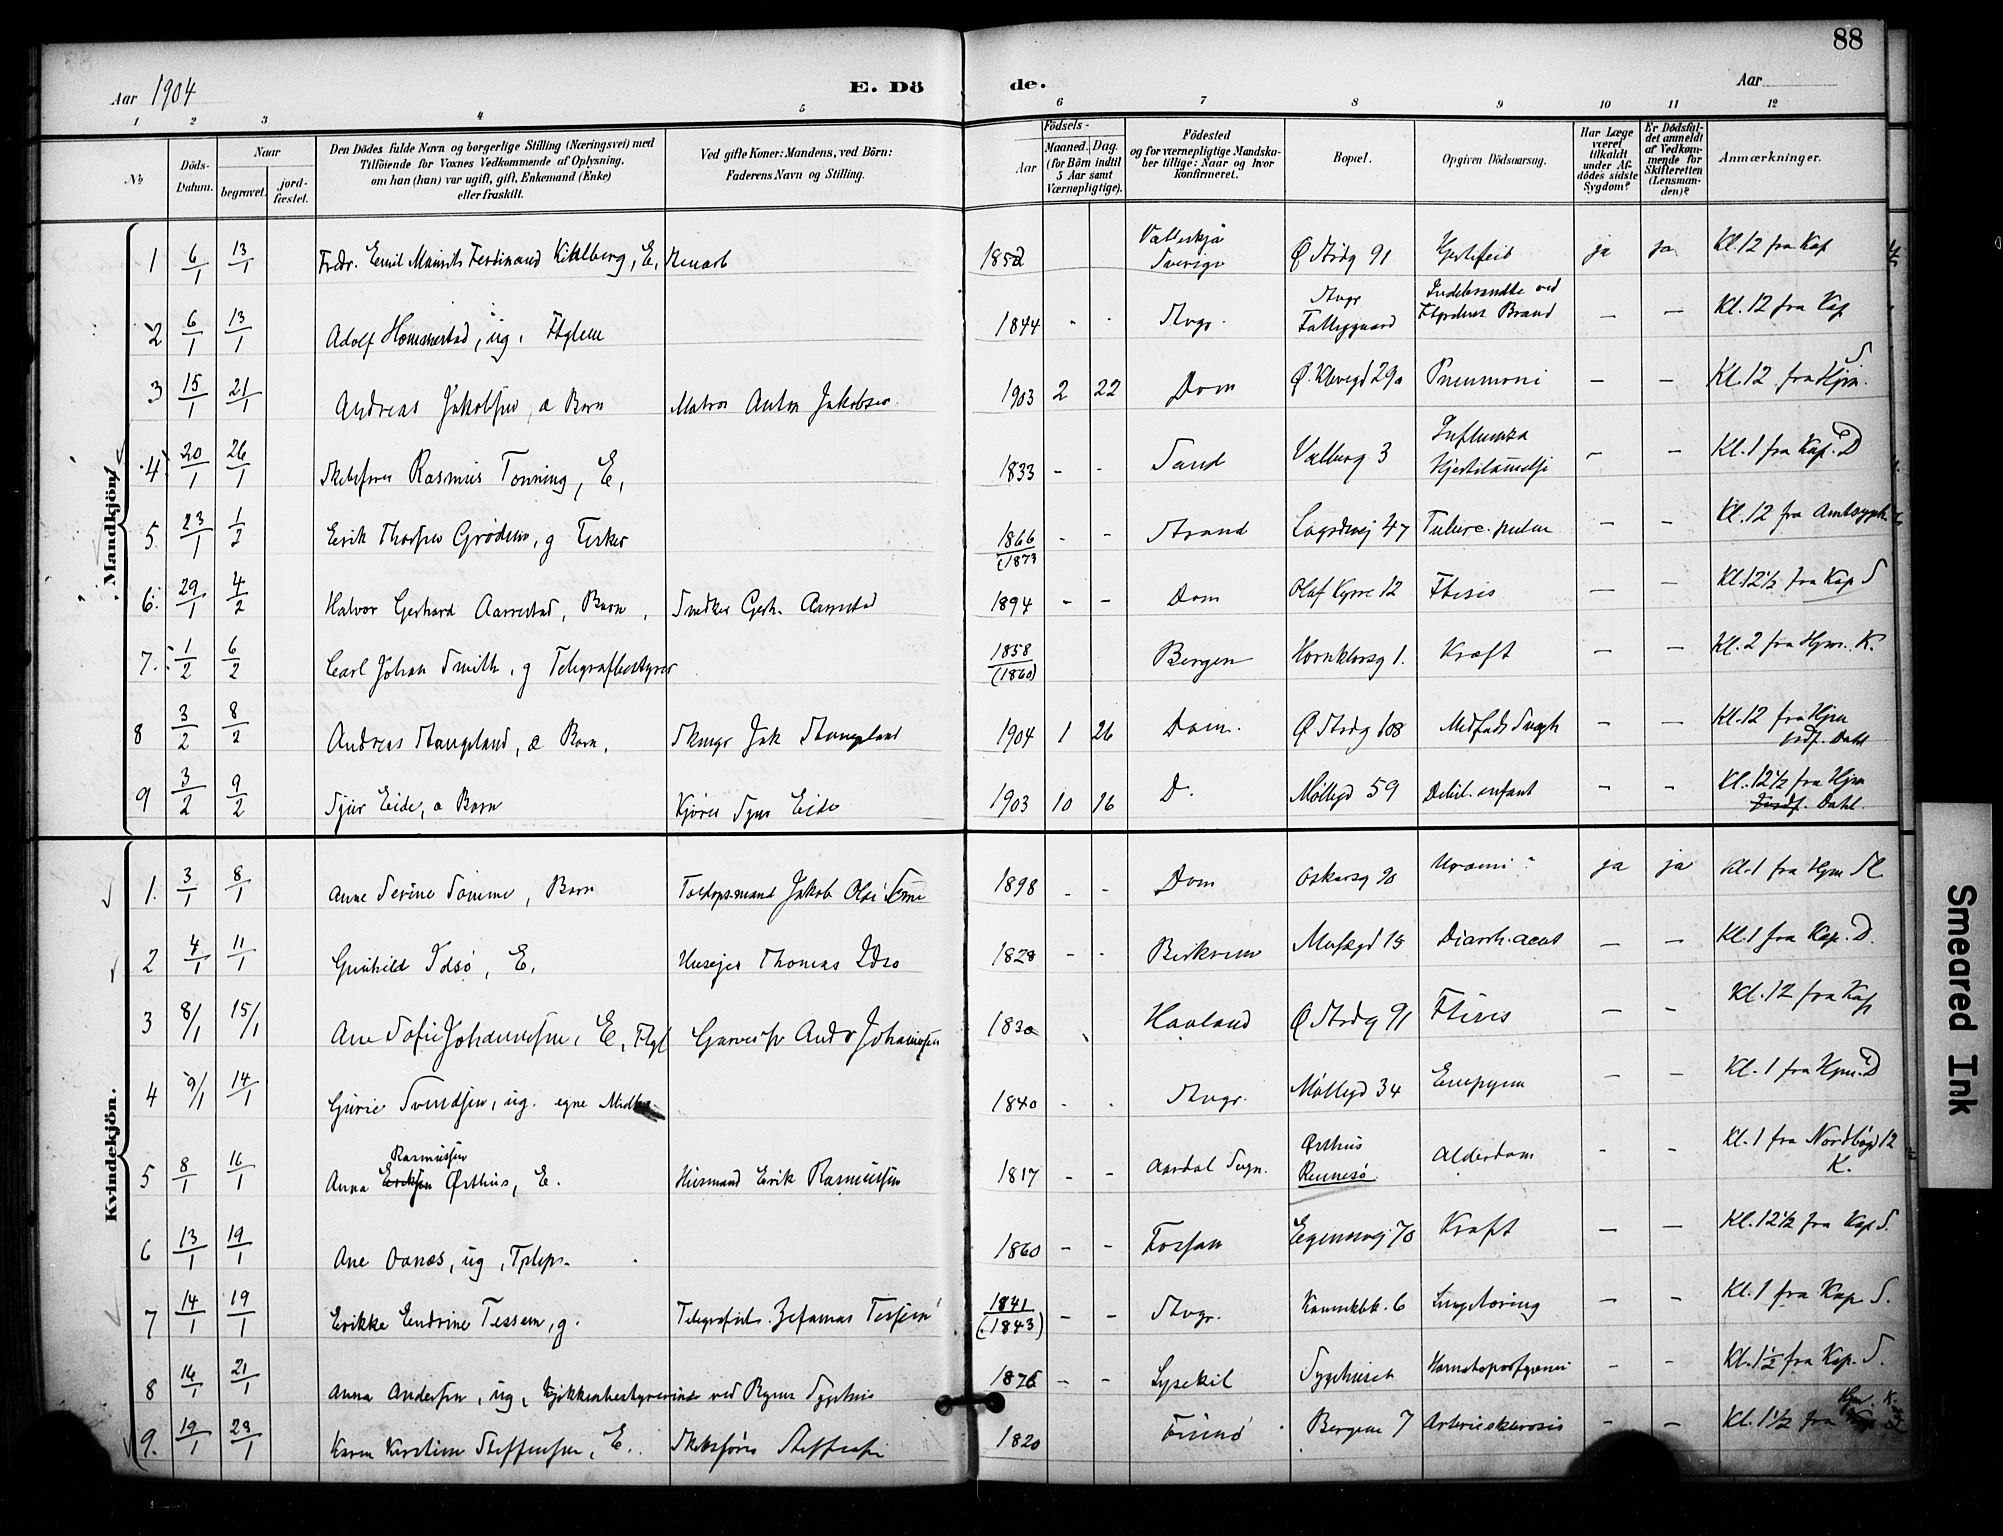 88
Aar 1904
E. Dö de.
Aar
1 2 3 4 5 6 7 8 9 10 11 12
No
Döds-Datum.
Naar
begravet.
jord-fæstet.
Den Dödes fulde Navn og borgerlige Stilling (Næringsvei) med
Tilföiende for Voxnes Vedkommende af Oplysning,
om han (hun) var ugift, gift, Enkemand (Enke)
eller fraskilt.
Ved gifte Koner: Mandens, ved Börn:
Faderens Navn og Stilling.
Födsels-
Aar
Maaned. Dag.
(for Börn indtil
5 Aar samt
Værnepligtige).
Födested
og for værnepligtige Mandska-
ber tillige: Naar og hvor
konfirmeret.
Bopæl.
Opgiven Dödsaarsag.
Har Læge
været
tilkaldt
under Af-
dödes sidste
Sygdom?
Er Dödsfal-
det anmeldt
af Vedkom-
mende for
Skifteretten
(Lensman-
den)?
Anmærkninger.
Mandkjön.
1 6/1 13/1 Fredr. Emil Ferdinand E, 1852 Sverige Ø Strdg 91 Hjertefeil ja ja Kl. 12 fra Kap
2 6/1 13/1 Adolf Hommerstad, ug. 1844 - - Stvgr. Stvgr Fattiggaard Indebrændte ved Brand — — Kl. 12 fra Kap
3 15/1 21/1 Andreas Jakobsen, æ Barn Matros Anton Jakobsen. 1903 2 22 Dom Ø. Klevegd 29a Pneumoni — — Kl. 12 fra Hjm. S
4 20/1 26/1 Skibsfører Rasmus Tonning, E, 1833 - - Sand Valberg 3 Influenza Hjertelammelse — — Kl. 1 fra Kap. D
5. 23/1 1/2 Erik Thorsen Grødem, g Fisker 1866 (1873 - - Strand Lagaardsvej 47 Tuberc. pulm — — Kl. 12 fra Amtssygeh.
6. 29/1 4/2 Halvor Gerhard Aarrestad, Barn, Snedker Gerh. Aarrestad 1894 - - Dom Olaf Kyrre 12 Ftisis — — Kl. 12 1/2 fra Kap S
7. 1/2 6/2 Carl Johan Smith, g Telegrafbestyrer 1858 (1860) Bergen Hornklovsg 1. Kræft — — Kl. 2 fra Hjm. K.
8 3/2 8/2 Andreas Stangeland, æ Barn, Jak Stangeland 1904 1 26 Dom. Ø Strdg 108 Medfødt Svagh — — Kl. 12 fra Hjm Jordf. Dahl
9 3/2 9/2 Sjur Eide, æ Barn Kjører Sjur Eide 1903 10 16 D. Møllegd 59 Debil. infant - - Kl. 12 1/2 fra Hjm Jordf. Dahl.
Kvindekjön.
1. 3/1 8/1 Anne Serine Sømme, Barn Jakob Olai Sømme 1898 - - Dom Oskarsg 20 Uræmi ja ja Kl. 1 fra Hjm
2 4/1 11/1 Gunhild Idsø, E. Husejer Thomas Idsø 1828 - - Birkrem 15 Diarrh. acut — — Kl. 1 fra Kap. D.
3 8/1 15/1 Ane Sofie Johannessen, E, Andr Johannessen 1830 Haaland Ø Strdg 91 Ftisis — - Kl. 12 fra Kap
4 9/1 14/1 Gurie Svendsen, ug. egne Midler 1840 - . Stvgr. Møllegd 34 Empyem - — Kl. 1 fra Hjm. D
5 8/1 16/1 Anna Eriksen Rasmussen Østhus, E. Husmand Erik Rasmussen 1817 - - Aardal Sogn. Østhus Rennesø. Alderdom - - Kl. 1 fra 12 K.
6 13/1 19/1 Ane Oanæs, ug, 1860 - - Forsan Egenesvej 70 Kræft — — Kl. 12 1/2 fra Kap S.
7 14/1 19/1 Erikke Endrine Tessem, g. Zefanias Tessem 1841 (1843) - - Stvgr. 6 Lungetæring - — Kl. 1 fra Kap S.
8 16/1 21/1 Anna Andersen, ug, Kjøkkenbestyrerinde ved Byens Sygehus 1876 - - Lysekil Sygehuset - - Kl. 1 1/2 fra Kap. S.
9. 19/1 23/1 Karen Kirstine Steffensen, E. Skibsfører Steffensen 1820 Finnø Bergene 7 Arteriesklerosis - - Kl. 1 1/2 fra Hjm. K.
Smeared Ink